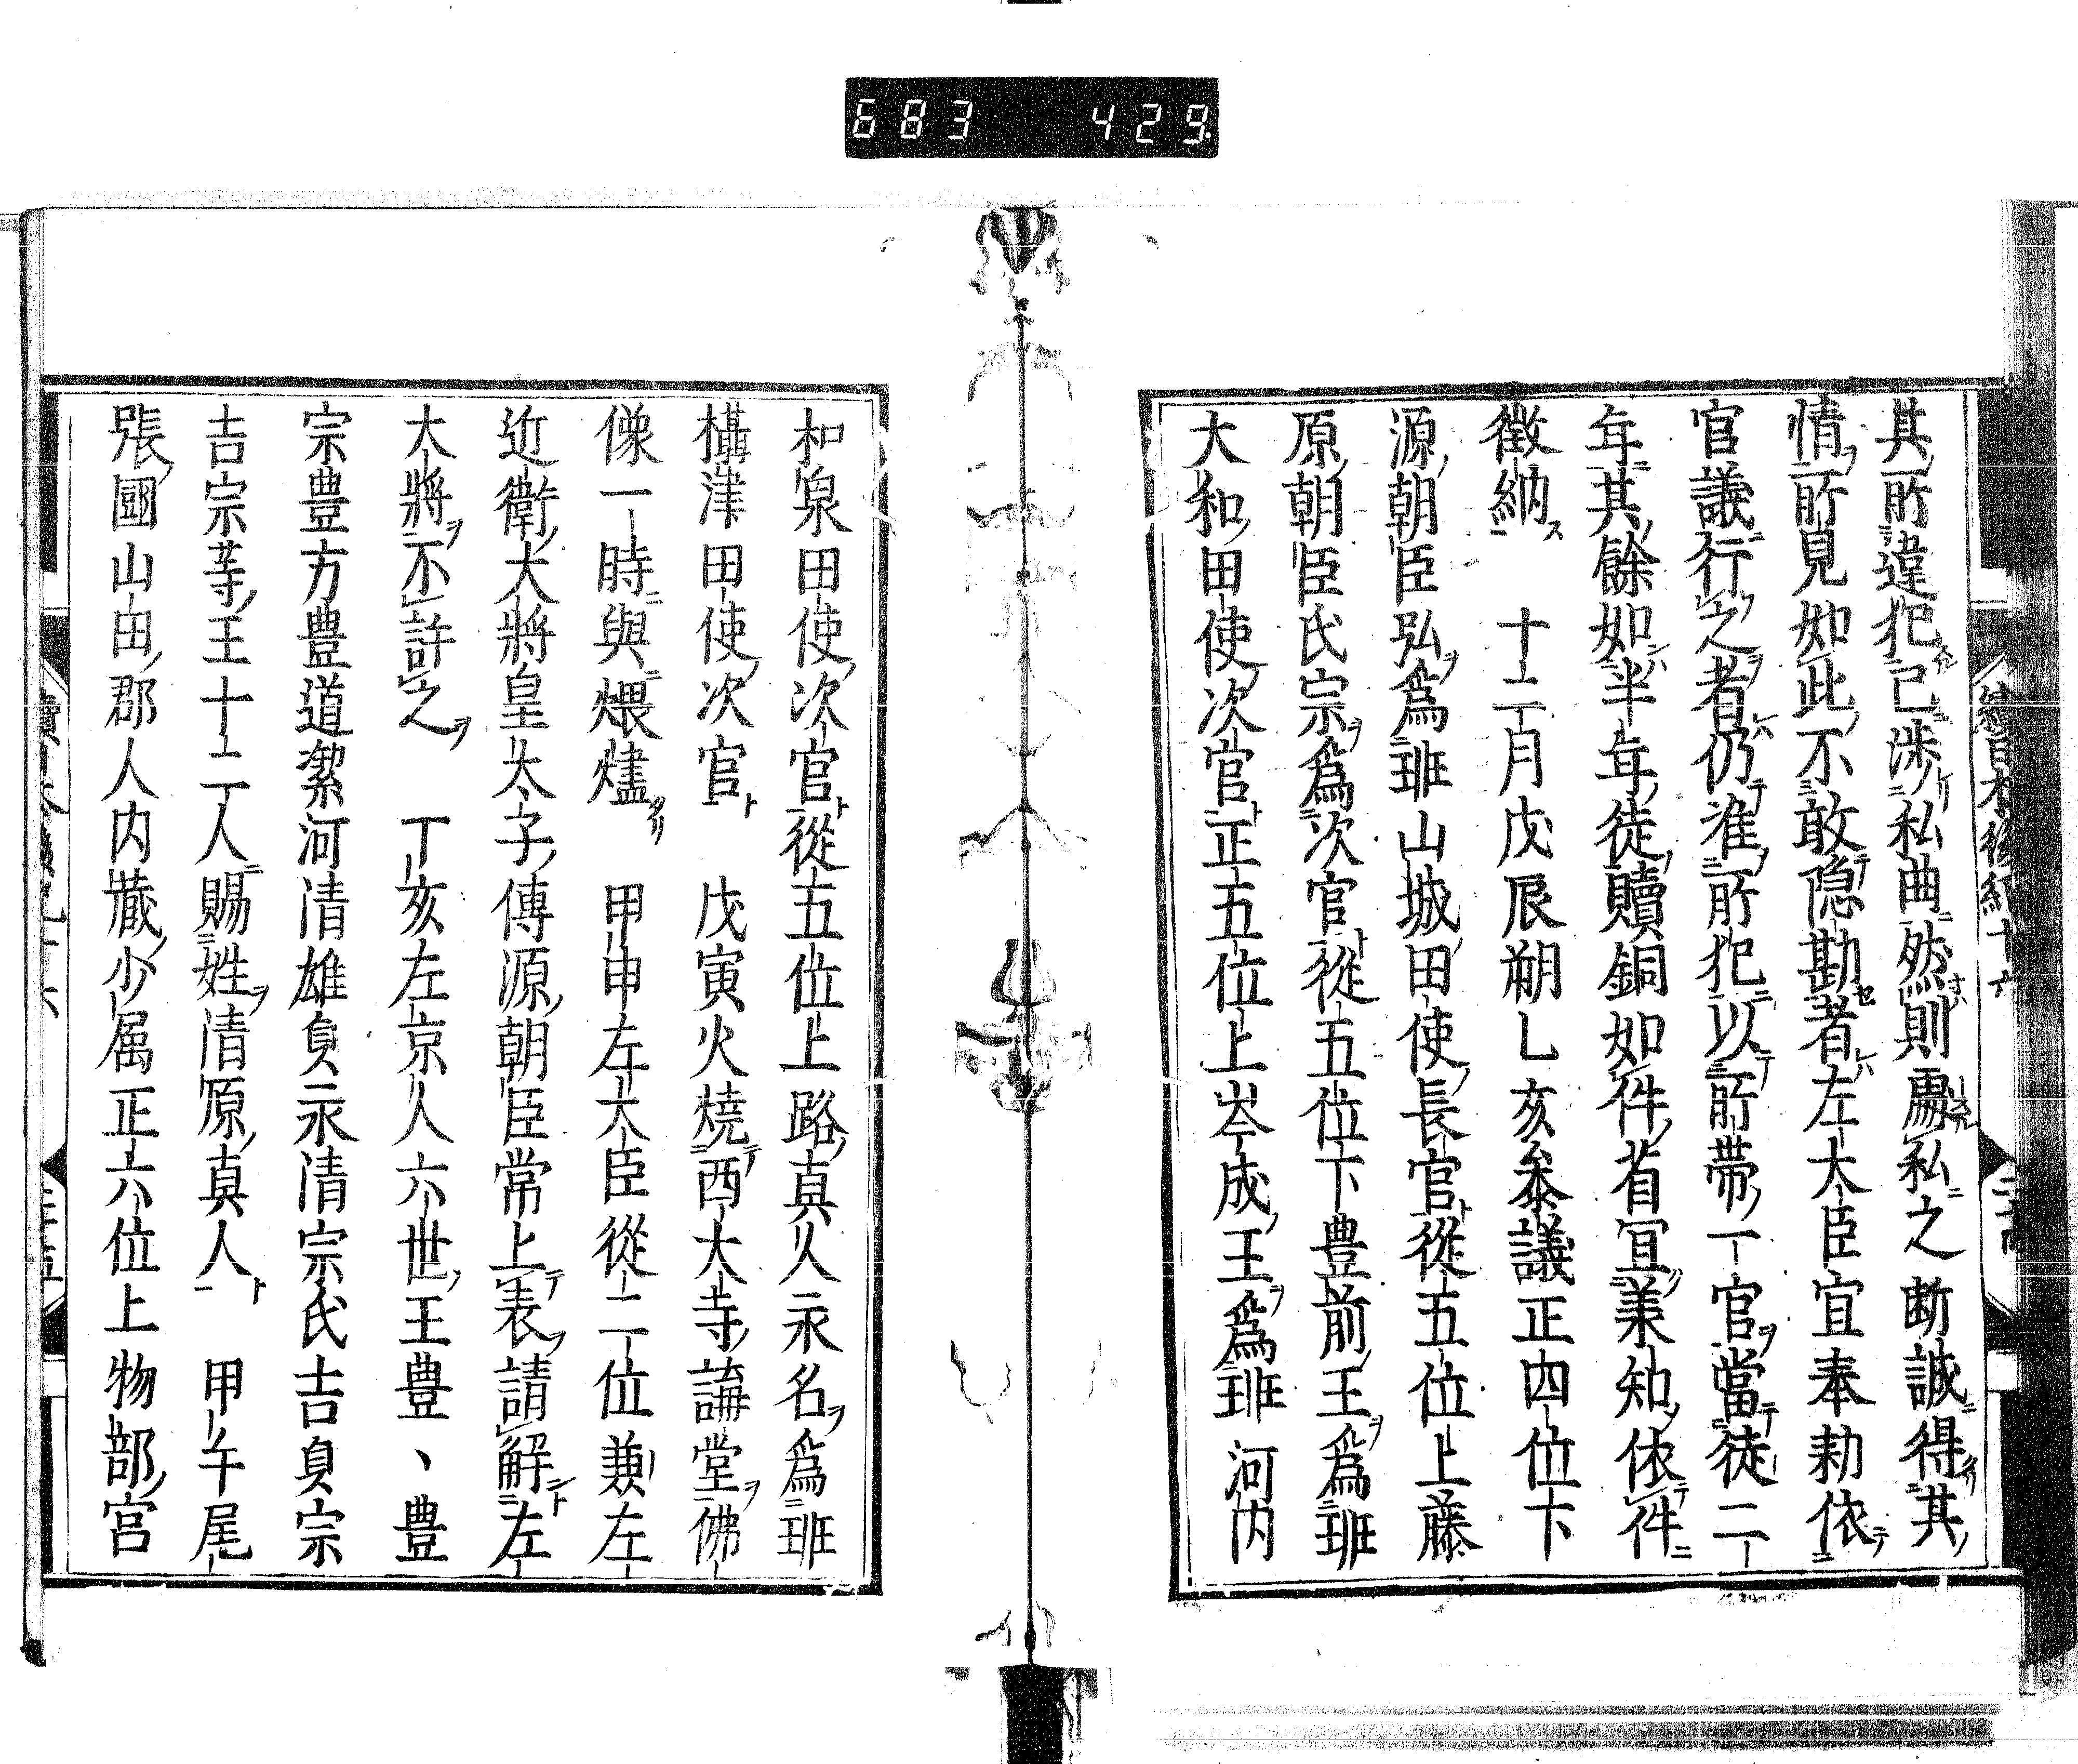 683 429.
其所違犯已涉私曲然則處私之断誠得其
情所見如此不敢隠勘者左大臣宣奉勅依
官議行之者仍准所犯以所帶一官當徒二
年其餘如半年徒贖銅如件省宜兼知依件
徵納 十二月戊辰朔乙亥參議正四位下
源朝臣弘爲班山城田使長官從五位上藤
原朝臣氏宗爲次官從五位下豊前王爲班
大和田使次官正五位上岑成王爲班河内
和泉田使次官從五位上路真人永名爲班
攝津田使次官 戊寅火燒西大寺講堂佛
像一時與煨燼 甲申左大臣從二位兼左
近衛大將皇太子傅源朝臣常上表請解左
大將不許之 丁亥左京人六世王豊、豊
宗豊方豊道潔河清雄貟永清宗氏吉貟宗
吉宗等王十二人賜姓清原真人 甲午尾
張國山田郡人内藏少属正六位上物部宮
續日本後紀十六